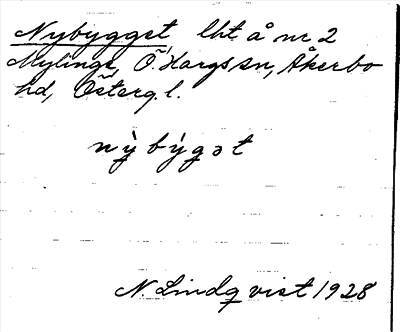 Nybygget lht å nr 2
Mylinge, Ö. Hargs sn, Åkerbo
hd, Österg. l.
nỳbýgət
N. Lindqvist 1928